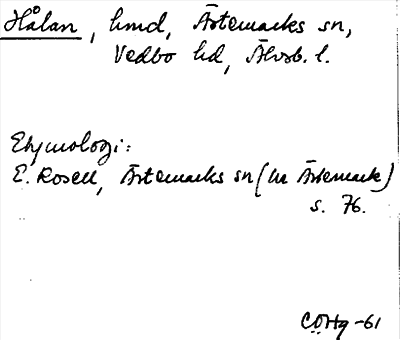 Hålan, hmd, Ärtemarks sn,
Vedbo hd, Älvsb. l.
Etymologi:
E. Rosell, Ärtemarks sn (ur Ärtemark)
s. 76.
COHg -61